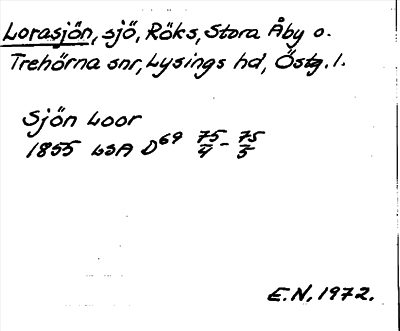 Lorasjön, sjö, Röks, Stora Åby o.
Trehörna snr, Lysings hd, Östg. l.
Sjön Loor
1855 LSA D69 75/4 - 75/5
E.N. 1972.